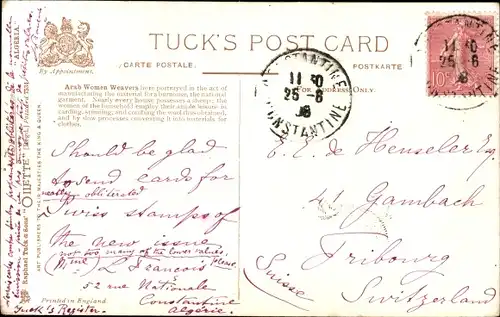 TUCK'S POST CARD
By Appointment.
CARTE POSTALE.
POSTKARTE
Arab Women Weavers here portrayed in the act of
manufacturing the material for a burnouse, the national
garment. Nearly every house possesses a sheep; the
women of the household employ their abundant leisure in
carding, spinning, and combing the wool thus obtained,
and by slow processes converting it into materials for
clothes.
FOR ADDRESS ONLY.
CONSTANTINE
11 30
25 -6
08
CONSTANTINE
11 30
25 -6
10
Should be glad
to send cards for
neatly obliterated
Swiss stamps of
the new issue
(not too many of the lower values,
please)
L. François
52 rue Nationale
Constantine
Algérie.
E. C. de Henseler Esq
41 Gambach
Fribourg
Suisse
Switzerland
Raphael Tuck & Sons' "OILETTE" "ALGERIA."
ART PUBLISHERS TO THEIR MAJESTIES THE KING & QUEEN.
Printed in England.
Tuck's Register.